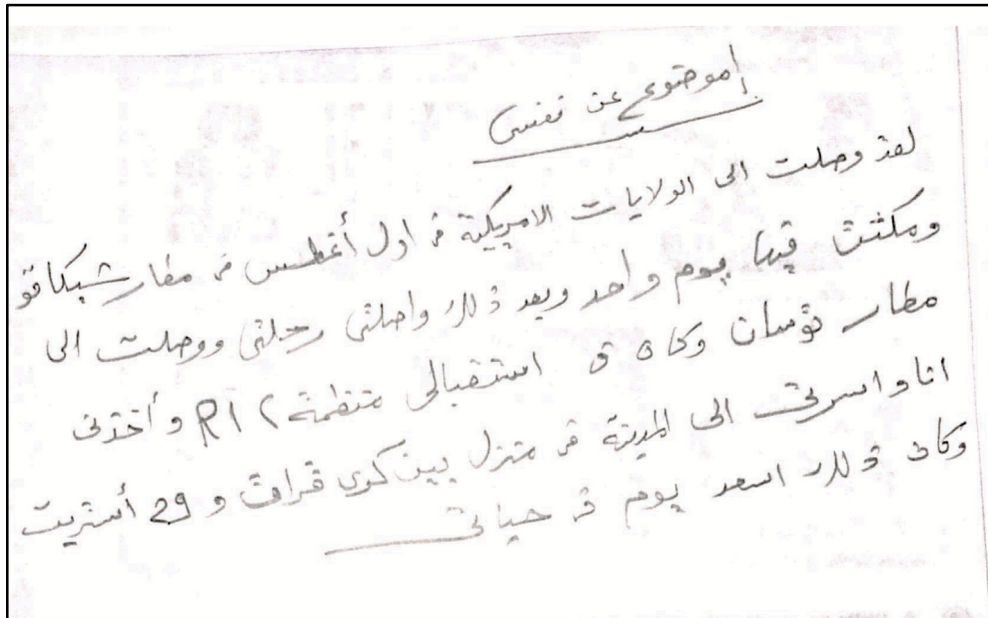 إموضوع عن نفسي
لقد وصلت الى الولايات الامريكية في اول أغطس في مطار شيكاقو
ومكثت فيها يوم واحد وبعد ذلك واصلتي رحلتي ووصلت الى
مطار توسان وكان في استقبالي متظمة و أخذوني
انا واسرتي الى المدينة في منزل بين كدي قرات و 29 أستريت
وكان ذلك اسعد يوم في حياتي